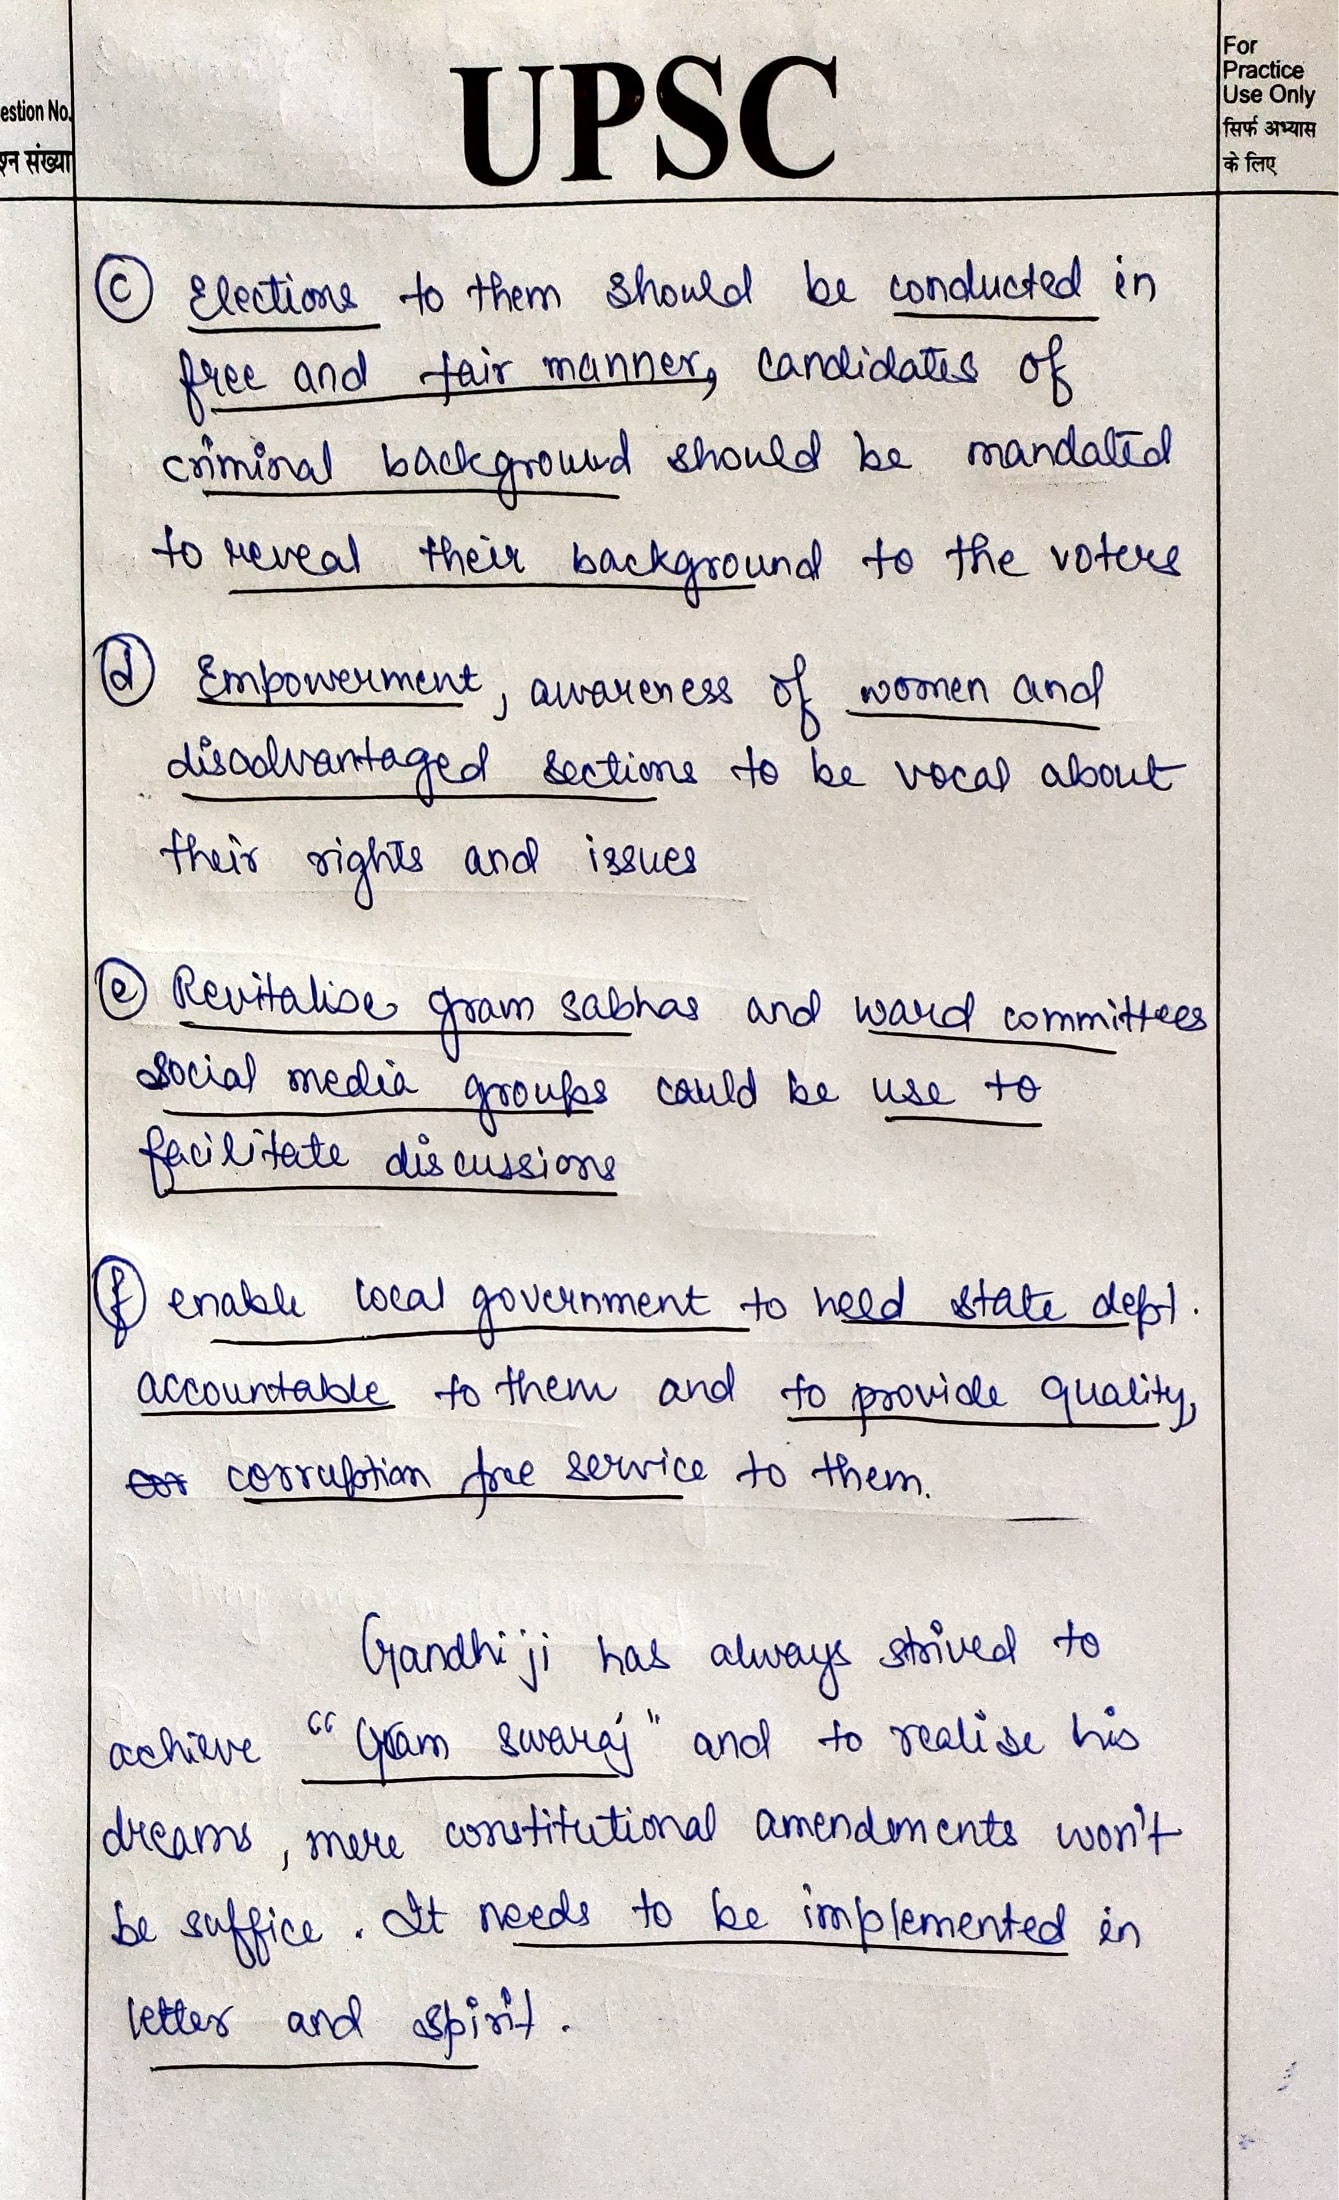 UPSC
For
Practice
Use Only
सिर्फ अभ्यास
के लिए
estion No.
श्न संख्या
(c) Elections to them should be conducted in
free and fair manner, candidates of
criminal background should be mandated
to reveal their background to the voters
(d) Empowerment, awareness of women and
disadvantaged sections to be vocal about
their rights and issues
(e) Revitalise gram sabhas and ward committees
social media groups could be use to
facilitate discussions
(f) enable local government to held state dept.
accountable to them and to provide quality,
cor corruption free service to them.
Gandhiji has always strived to
achieve "Gram swaraj" and to realise his
dreams, mere constitutional amendments won't
be suffice. It needs to be implemented in
letter and spirit.